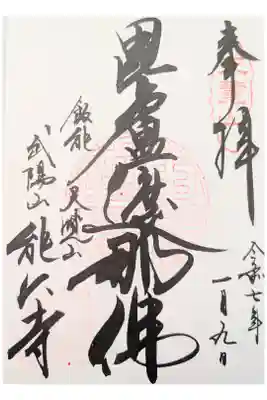 奉拝
令和七年
一月九日
毘盧遮那佛
飯能 天覧山
武陽山 能仁寺